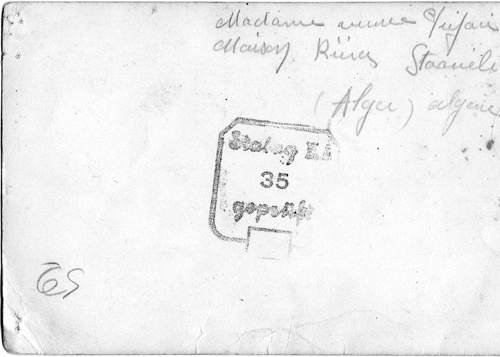 Madame veuve
Maison Staouéli
(Alger) algerie
Stalag
35
geprüft
65